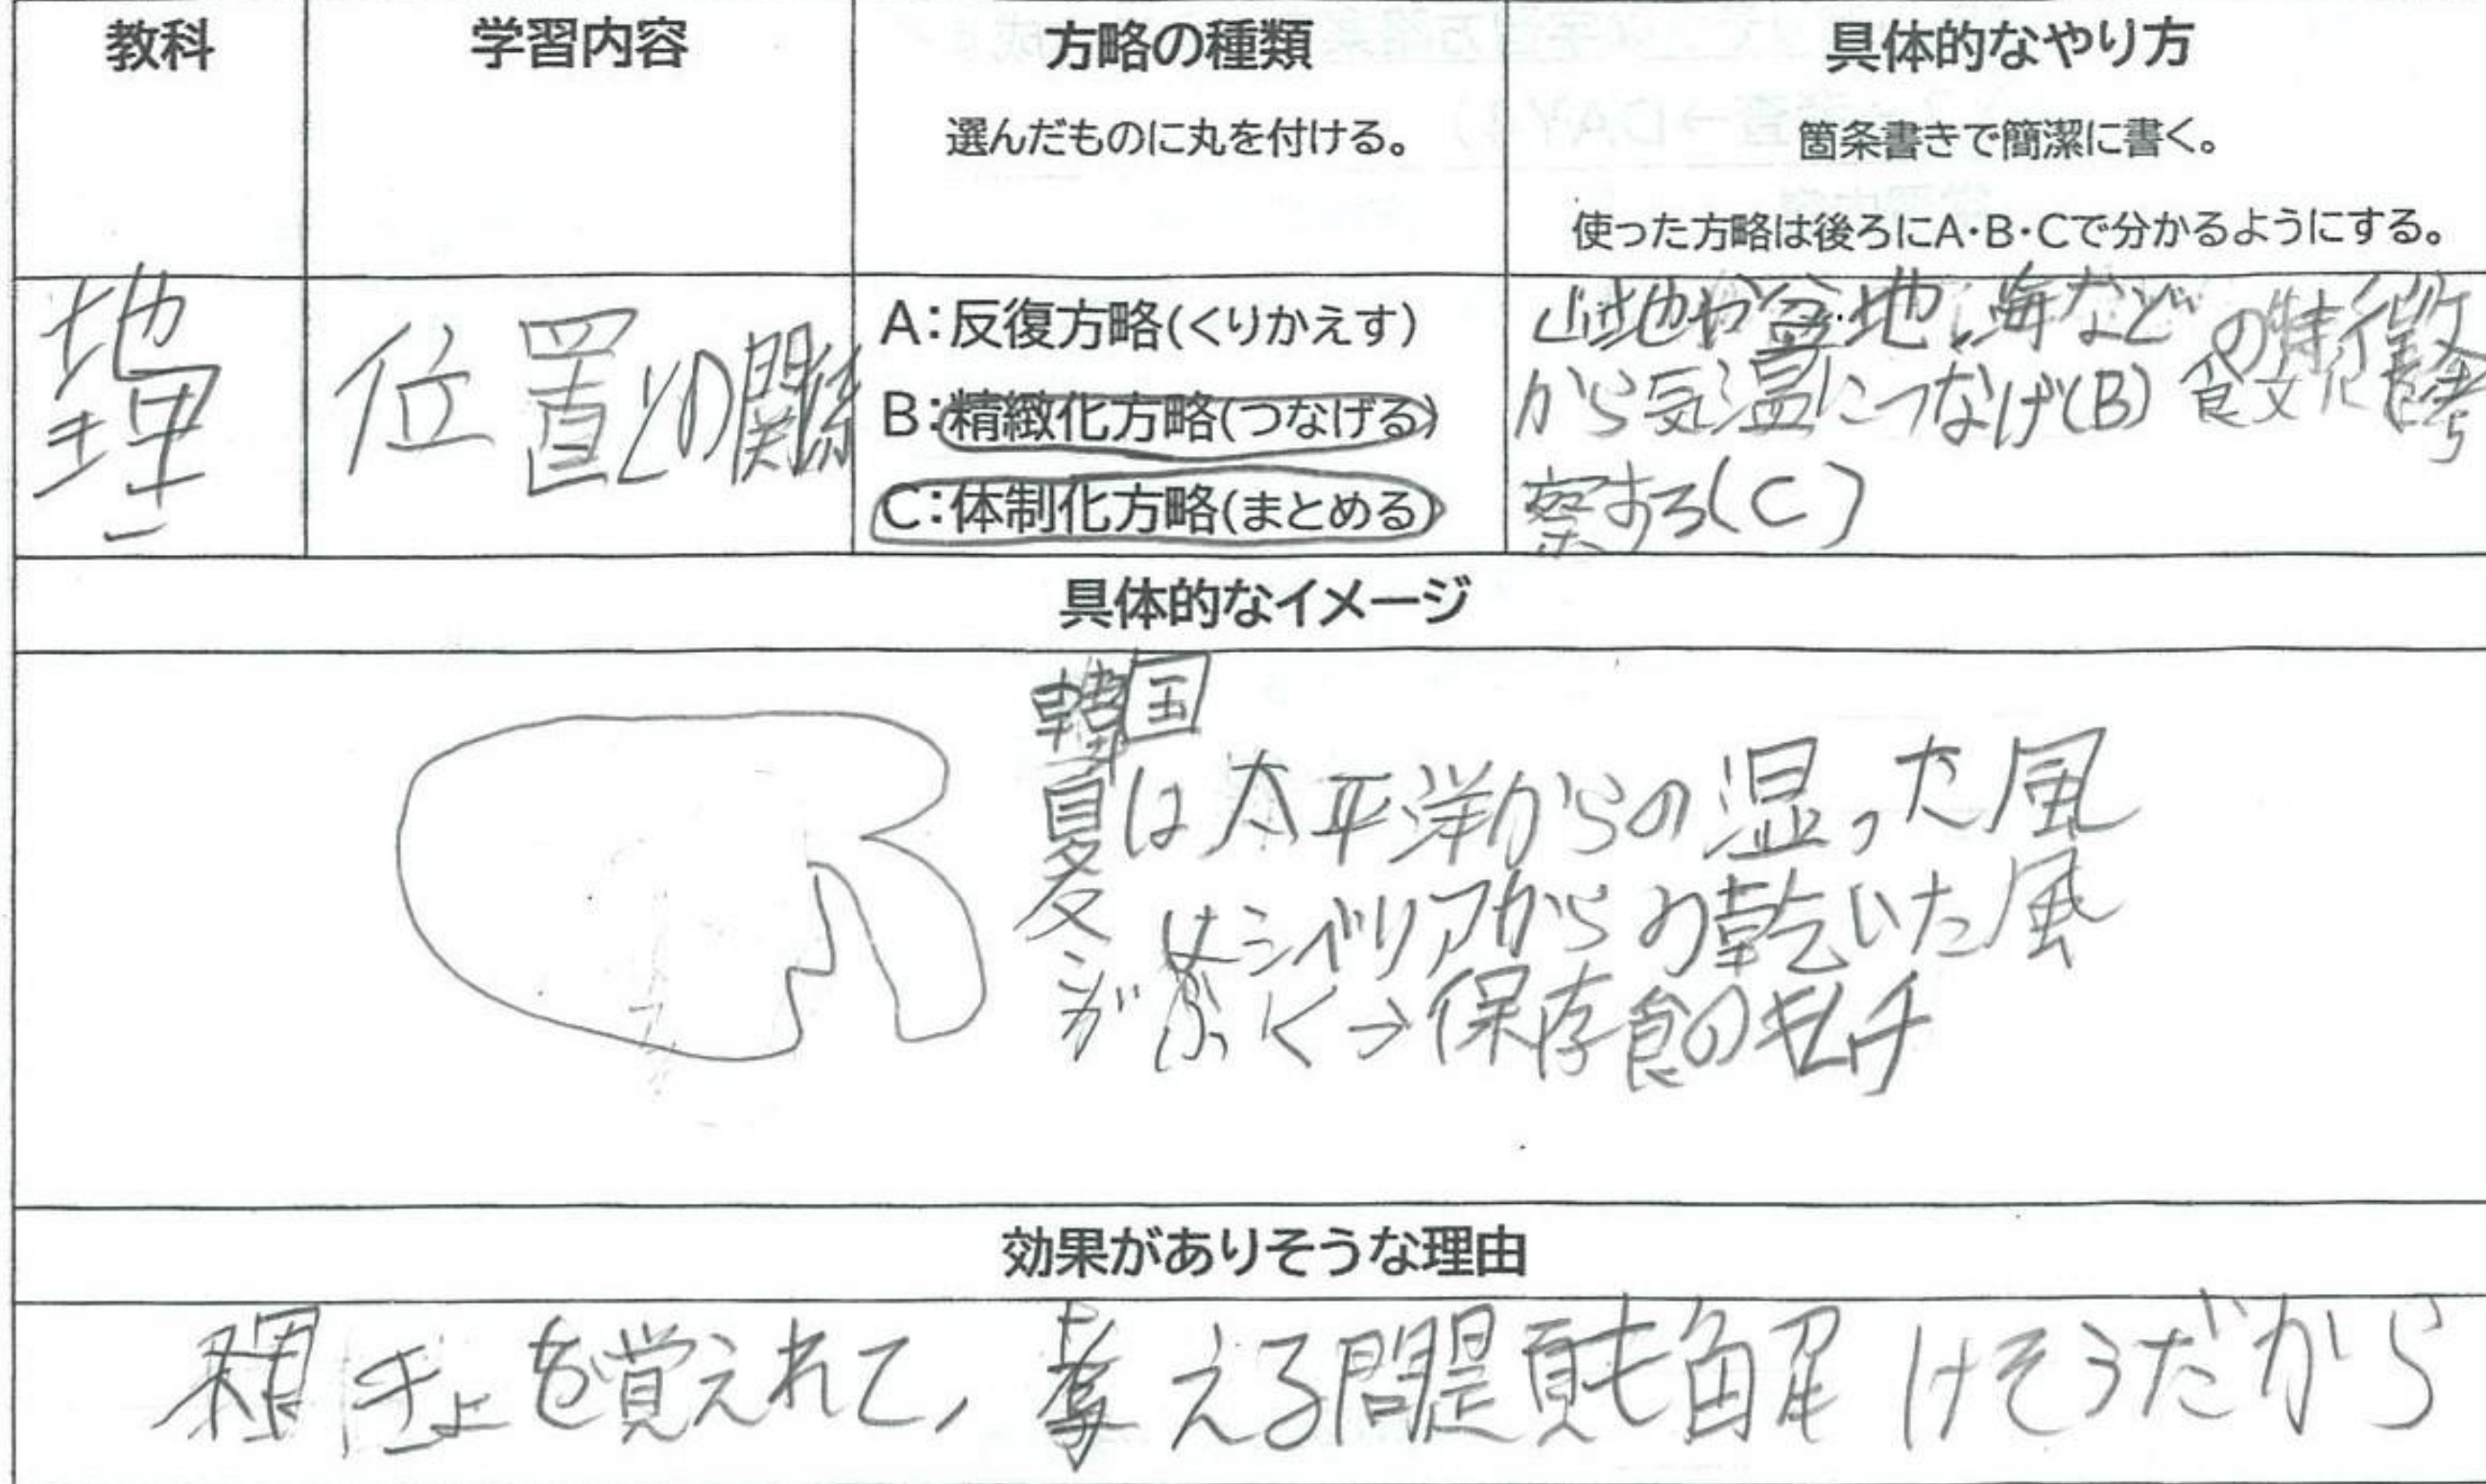 教科
学習内容
方略の種類
選んだものに丸を付ける。
具体的なやり方
箇条書きで簡潔に書く。
使った方略は後ろにA・B・Cで分かるようにする。
地理
位置との関係
A：反復方略(くりかえす)
B：精緻化方略(つなげる)
C：体制化方略(まとめる)
山地や盆地、海などの特徴
から気温につなげ(B)食文化を考
察する(C)
具体的なイメージ
韓国
夏は太平洋からの湿った風
冬はシベリアからの乾いた風
がふく→保存食のキムチ
効果がありそうな理由
を覚えれて、考える問題も解けそうだから